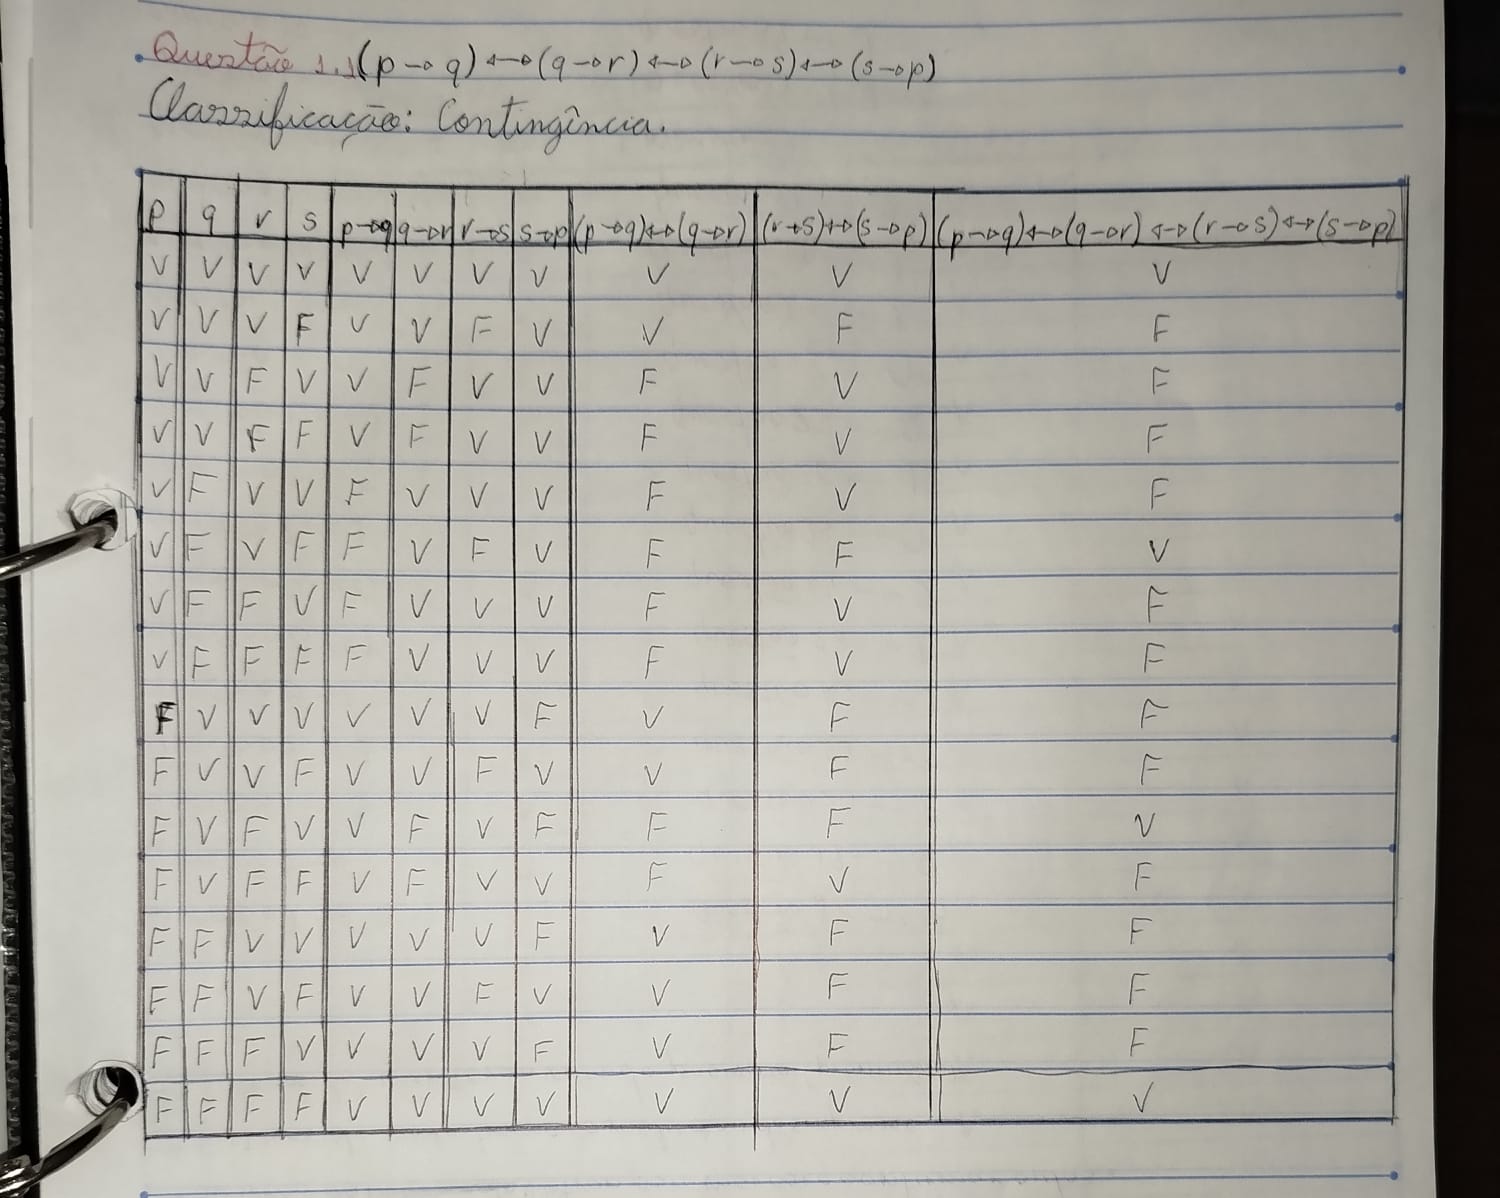 Questão 1.1 (p→q)↔(q→r)↔(r→s)↔(s→p)
Classificação: Contingência.
p q r s p→q q→r r→s s→p (p→q)↔(q→r) (r→s)↔(s→p) (p→q)↔(q→r)↔(r→s)↔(s→p)
V V V V V V V V V V V
V V V F V V F V V F F
V V F V V F V V F V F
V V F F V F V V F V F
V F V V F V V V F V F
V F V F F V F V F F V
V F F V F V V V F V F
V F F F F V V V F V F
F V V V V V V F V F F
F V V F V V F V V F F
F V F V V F V F F F V
F V F F V F V V F V F
F F V V V V V F V F F
F F V F V V F V V F F
F F F V V V V F V F F
F F F F V V V V V V V